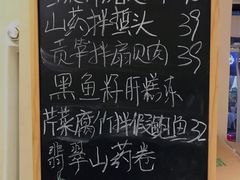 山药拌蛏头 39
贡笋拌扇贝肉 39
黑鱼籽肝糕冻
芹菜腐竹拌假鲍鱼 32
翡翠山药卷